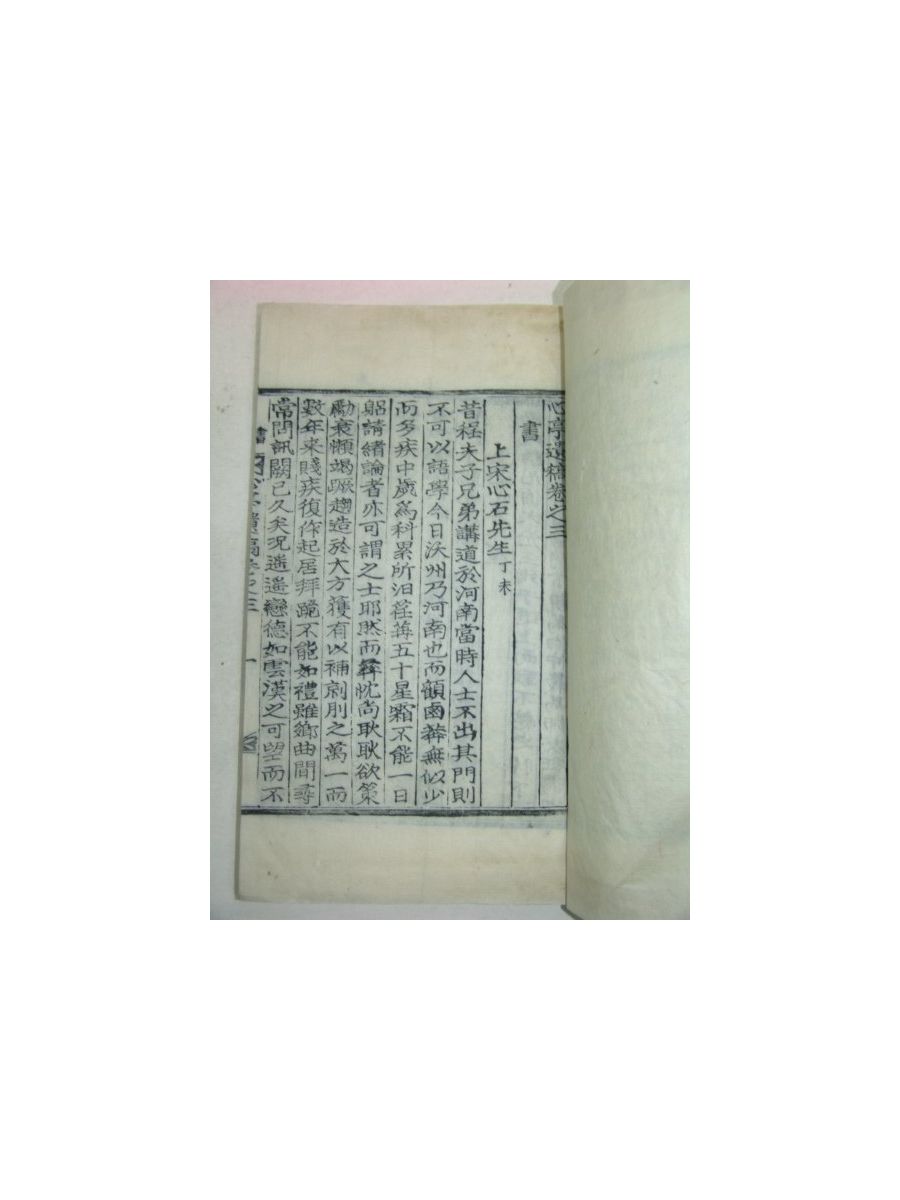 心亭遺稿卷之三
書
上宋心石先生 丁未
昔程夫子兄弟講道於河南當時人士不出其門則
不可以語學今日沃州乃河南也而顧鹵莽無似少
而多疾中歲爲科累所汨荏苒五十星霜不能一日
躬請緖論者亦可謂之士耶然而彛忱尙耿耿欲策
勵衰懶竭蹶趨造於大方獲有以補劓刖之萬一而
數年来賤疾復作起居拜跪不能如禮雖鄕曲間尋
常問訊闕已久矣况遥遥戀德如雲漢之可望而不
書 心亭遺稿卷之三 一